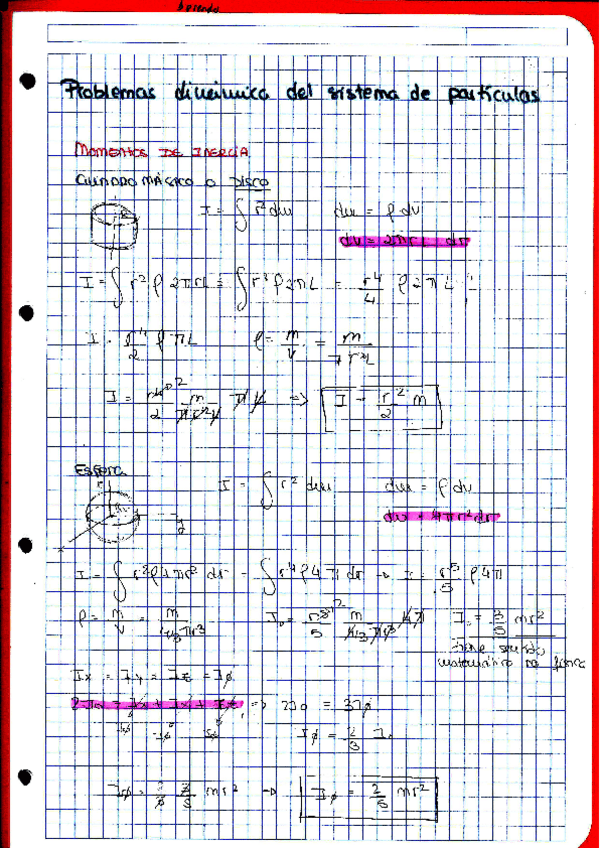 Problemas dinámica del sistema de partículas
MOMENTOS DE INERCIA
CILINDRO MÁCICO O DISCO
I = ∫ r² dm dm = ρ dv
dv = 2πrL dr
I = ∫ r² ρ 2πrL = ∫ r³ ρ 2πL = r⁴/4 ρ 2πL
I = r⁴/2 ρ πL ρ = m/v = m/πr²L
I = r⁴/2 m/πr²L πL => I = r²/2 m
ESFERA
I = ∫ r² dm dm = ρ dv
dv = 4πr² dr
I = ∫ r² ρ 4πr² dr = ∫ r⁴ ρ 4π dr → I = r⁵/5 ρ 4π
ρ = m/v = m/4/3πr³ I₀ = r⁵/5 m/4/3πr³ 4π I₀ = 3/5 mr²
matemático no físico
Ix = Iy = Iz = Iφ
2I₀ = Ix + Iy + Iz => 2I₀ = 3Iφ
Iφ Iφ Iφ Iφ = 2/3 I₀
Iφ = 2/3 3/5 mr² → Iφ = 2/5 mr²